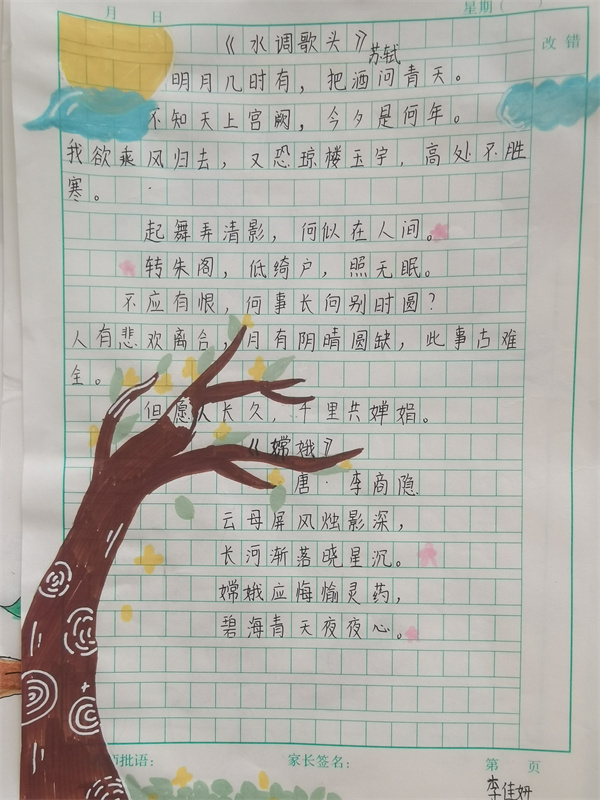 月 日 星期( )
改错
《水调歌头》
苏轼
明月几时有，把酒问青天。
不知天上宫阙，今夕是何年。
我欲乘风归去，又恐琼楼玉宇，高处不胜
寒。
起舞弄清影，何似在人间。
转朱阁，低绮户，照无眠。
不应有恨，何事长向别时圆？
人有悲欢离合，月有阴晴圆缺，此事古难
全。
但愿人长久，千里共婵娟。
《嫦娥》
唐·李商隐
云母屏风烛影深，
长河渐落晓星沉。
嫦娥应悔偷灵药，
碧海青天夜夜心。
师批语： 家长签名： 第 页
李佳妍